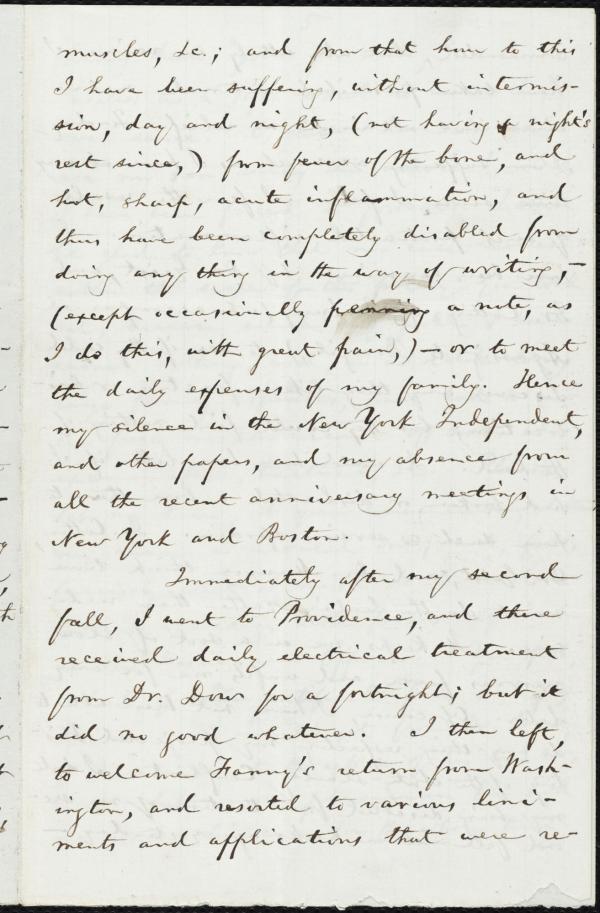 muscles, &c.; and from that hour to this
I have been suffering, without intermis-
sion, day and night, (not having a night's
rest since,) from fever of the bone, and
hot, sharp, acute inflammation, and
thus have been completely disabled from
doing any thing in the way of writing,—
(except occasionally penning a note, as
I do this, with great pain,)—or to meet
the daily expenses of my family. Hence
my silence in the New York Independent,
and other papers, and my absence from
all the recent anniversary meetings in
New York and Boston.
Immediately after my second
fall, I went to Providence, and there
received daily electrical treatment
from Dr. Dow for a fortnight; but it
did no good whatever. I then left,
to welcome Fanny's return from Wash-
ington, and resorted to various lini-
ments and applications that were re-